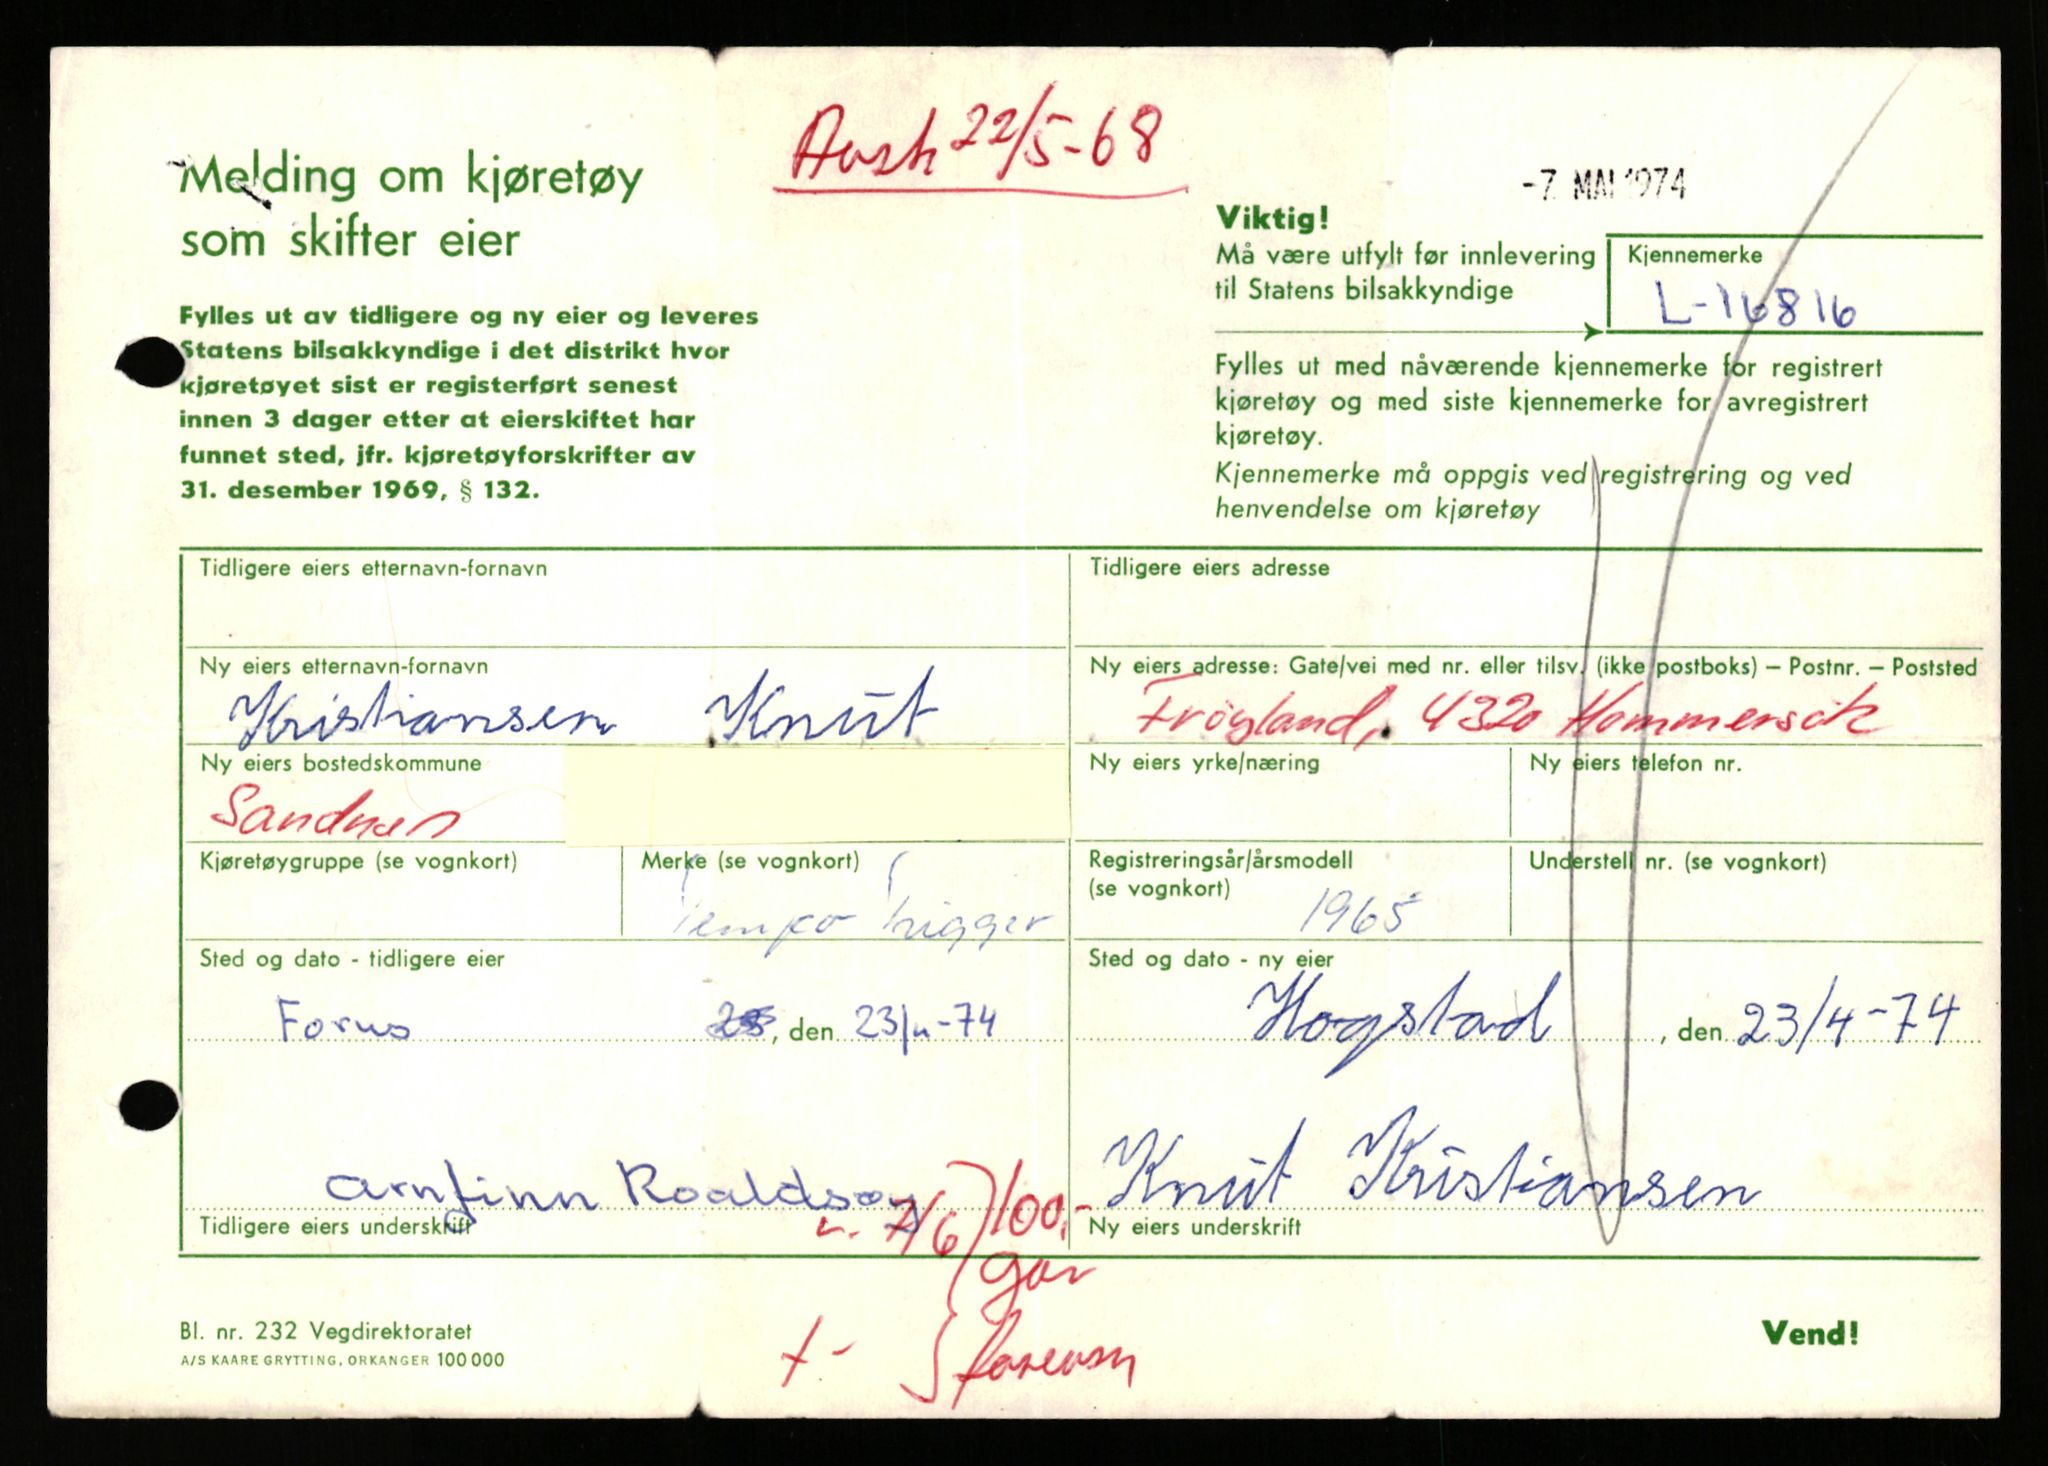 Avsk 22/5-68
-7 MAI 1974
Melding om kjøretøy
som skifter eier
Fylles ut av tidligere og ny eier og leveres
Statens bilsakkyndige i det distrikt hvor
kjøretøyet sist er registerført senest
innen 3 dager etter at eierskiftet har
funnet sted, jfr. kjøretøyforskrifter av
31. desember 1969, § 132.
Viktig!
Må være utfylt før innlevering
til Statens bilsakkyndige
Kjennemerke
L-16816
Fylles ut med nåværende kjennemerke for registrert
kjøretøy og med siste kjennemerke for avregistrert
kjøretøy.
Kjennemerke må oppgis ved registrering og ved
henvendelse om kjøretøy
Tidligere eiers etternavn-fornavn
Tidligere eiers adresse
Ny eiers etternavn-fornavn
Kristiansen Knut
Ny eiers adresse: Gate/vei med nr. eller tilsv. (ikke postboks) – Postnr. – Poststed
Frøyland, 4320 Hommersåk
Ny eiers bostedskommune
Sandnes
Ny eiers yrke/næring
Ny eiers telefon nr.
Kjøretøygruppe (se vognkort)
Merke (se vognkort)
Tempo Trigger
Registreringsår/årsmodell
(se vognkort)
1965
Understell nr. (se vognkort)
Sted og dato - tidligere eier
Forus , den 23/4-74
Sted og dato - ny eier
Hogstad , den 23/4-74
Arnfinn Roaldsøy
Tidligere eiers underskrift
Knut Kristiansen
Ny eiers underskrift
7/6 100,-
Bl. nr. 232 Vegdirektoratet
A/S KAARE GRYTTING, ORKANGER 100 000
Vend!